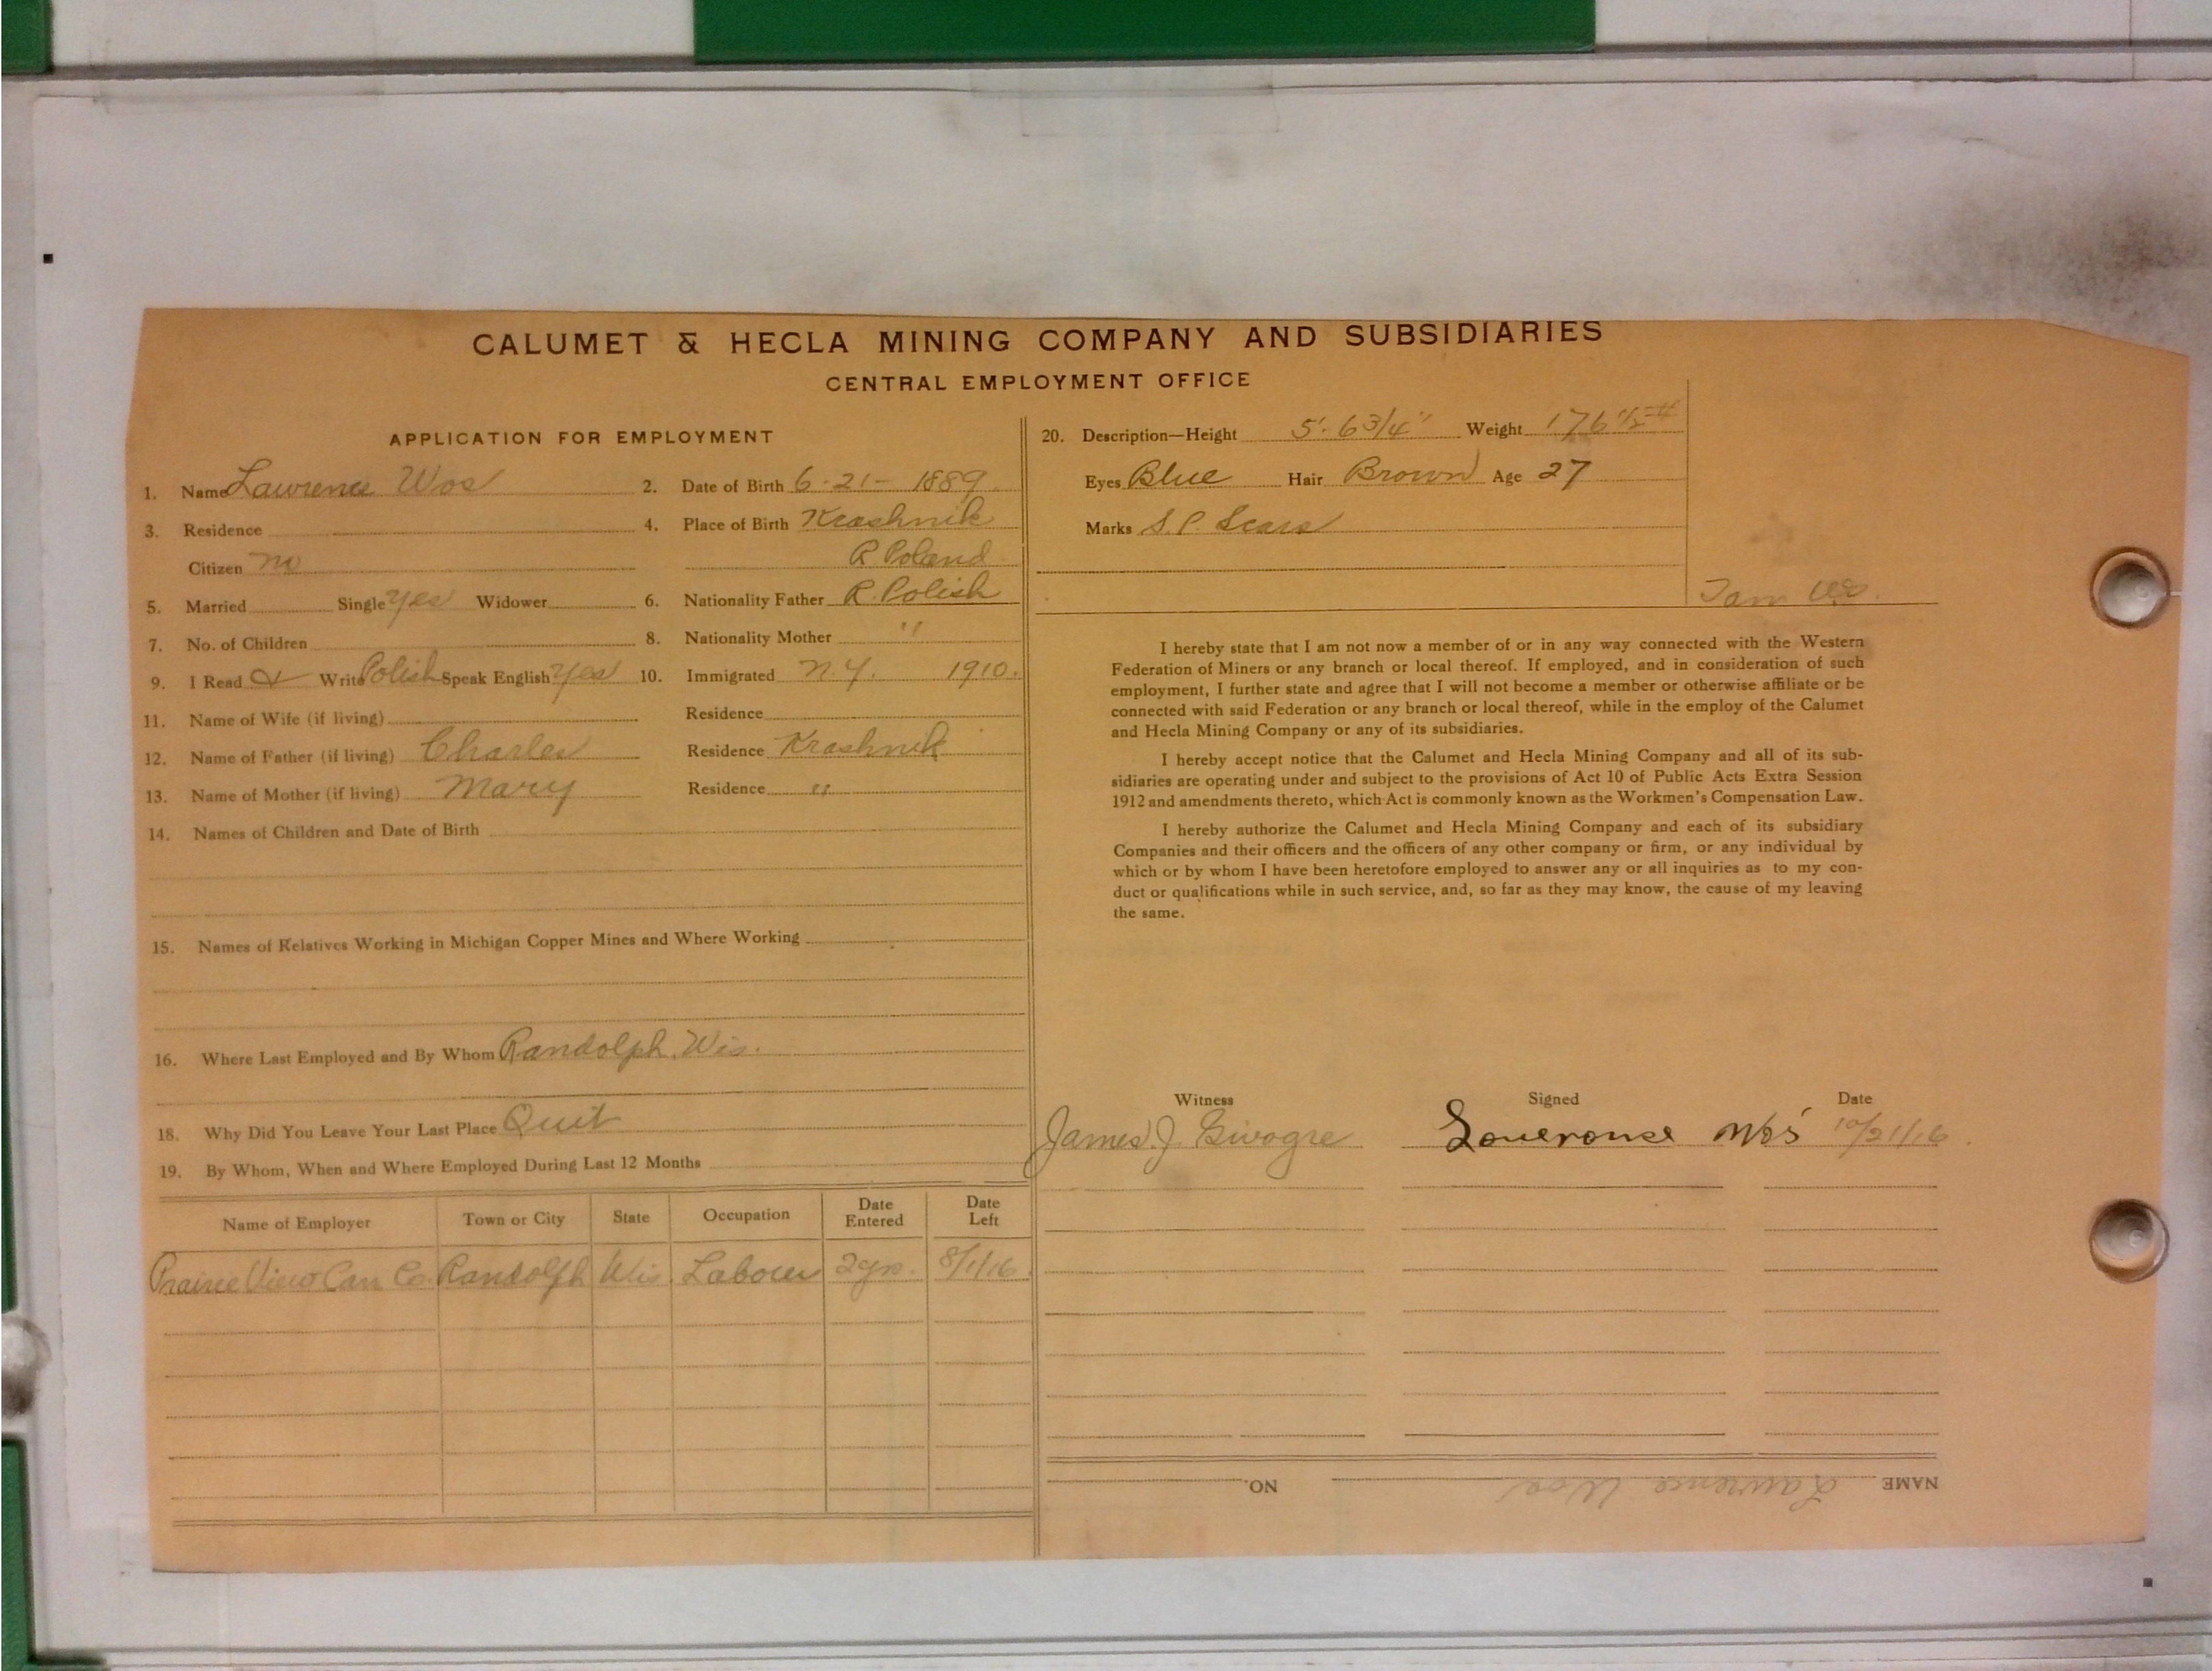 CALUMET & HECLA MINING COMPANY AND SUBSIDIARIES
CENTRAL EMPLOYMENT OFFICE
APPLICATION FOR EMPLOYMENT
1. Name Lawrence Wos 2. Date of Birth 6-21-1889
3. Residence 4. Place of Birth Krashnik
Citizen no R. Poland
5. Married Single yes Widower 6. Nationality Father R. Polish
7. No. of Children 8. Nationality Mother "
9. I Read & Write Polish Speak English yes 10. Immigrated N.Y. 1910.
11. Name of Wife (if living) Residence
12. Name of Father (if living) Charles Residence Krashnik
13. Name of Mother (if living) Mary Residence "
14. Names of Children and Date of Birth
15. Names of Relatives Working in Michigan Copper Mines and Where Working
16. Where Last Employed and By Whom Randolph, Wis.
18. Why Did You Leave Your Last Place Quit
19. By Whom, When and Where Employed During Last 12 Months
Name of Employer Town or City State Occupation Date Entered Date Left
Prairie View Can Co. Randolph Wis. Labourer 2 yrs. 8/1/16
20. Description—Height 5'-6 3/4" Weight 176 1/2 #
Eyes Blue Hair Brown Age 27
Marks S.P. Scars
I hereby state that I am not now a member of or in any way connected with the Western
Federation of Miners or any branch or local thereof. If employed, and in consideration of such
employment, I further state and agree that I will not become a member or otherwise affiliate or be
connected with said Federation or any branch or local thereof, while in the employ of the Calumet
and Hecla Mining Company or any of its subsidiaries.
I hereby accept notice that the Calumet and Hecla Mining Company and all of its sub-
sidiaries are operating under and subject to the provisions of Act 10 of Public Acts Extra Session
1912 and amendments thereto, which Act is commonly known as the Workmen's Compensation Law.
I hereby authorize the Calumet and Hecla Mining Company and each of its subsidiary
Companies and their officers and the officers of any other company or firm, or any individual by
which or by whom I have been heretofore employed to answer any or all inquiries as to my con-
duct or qualifications while in such service, and, so far as they may know, the cause of my leaving
the same.
Witness Signed Date
James J. Wos 10/21/16
NAME Lawrence Wos NO.